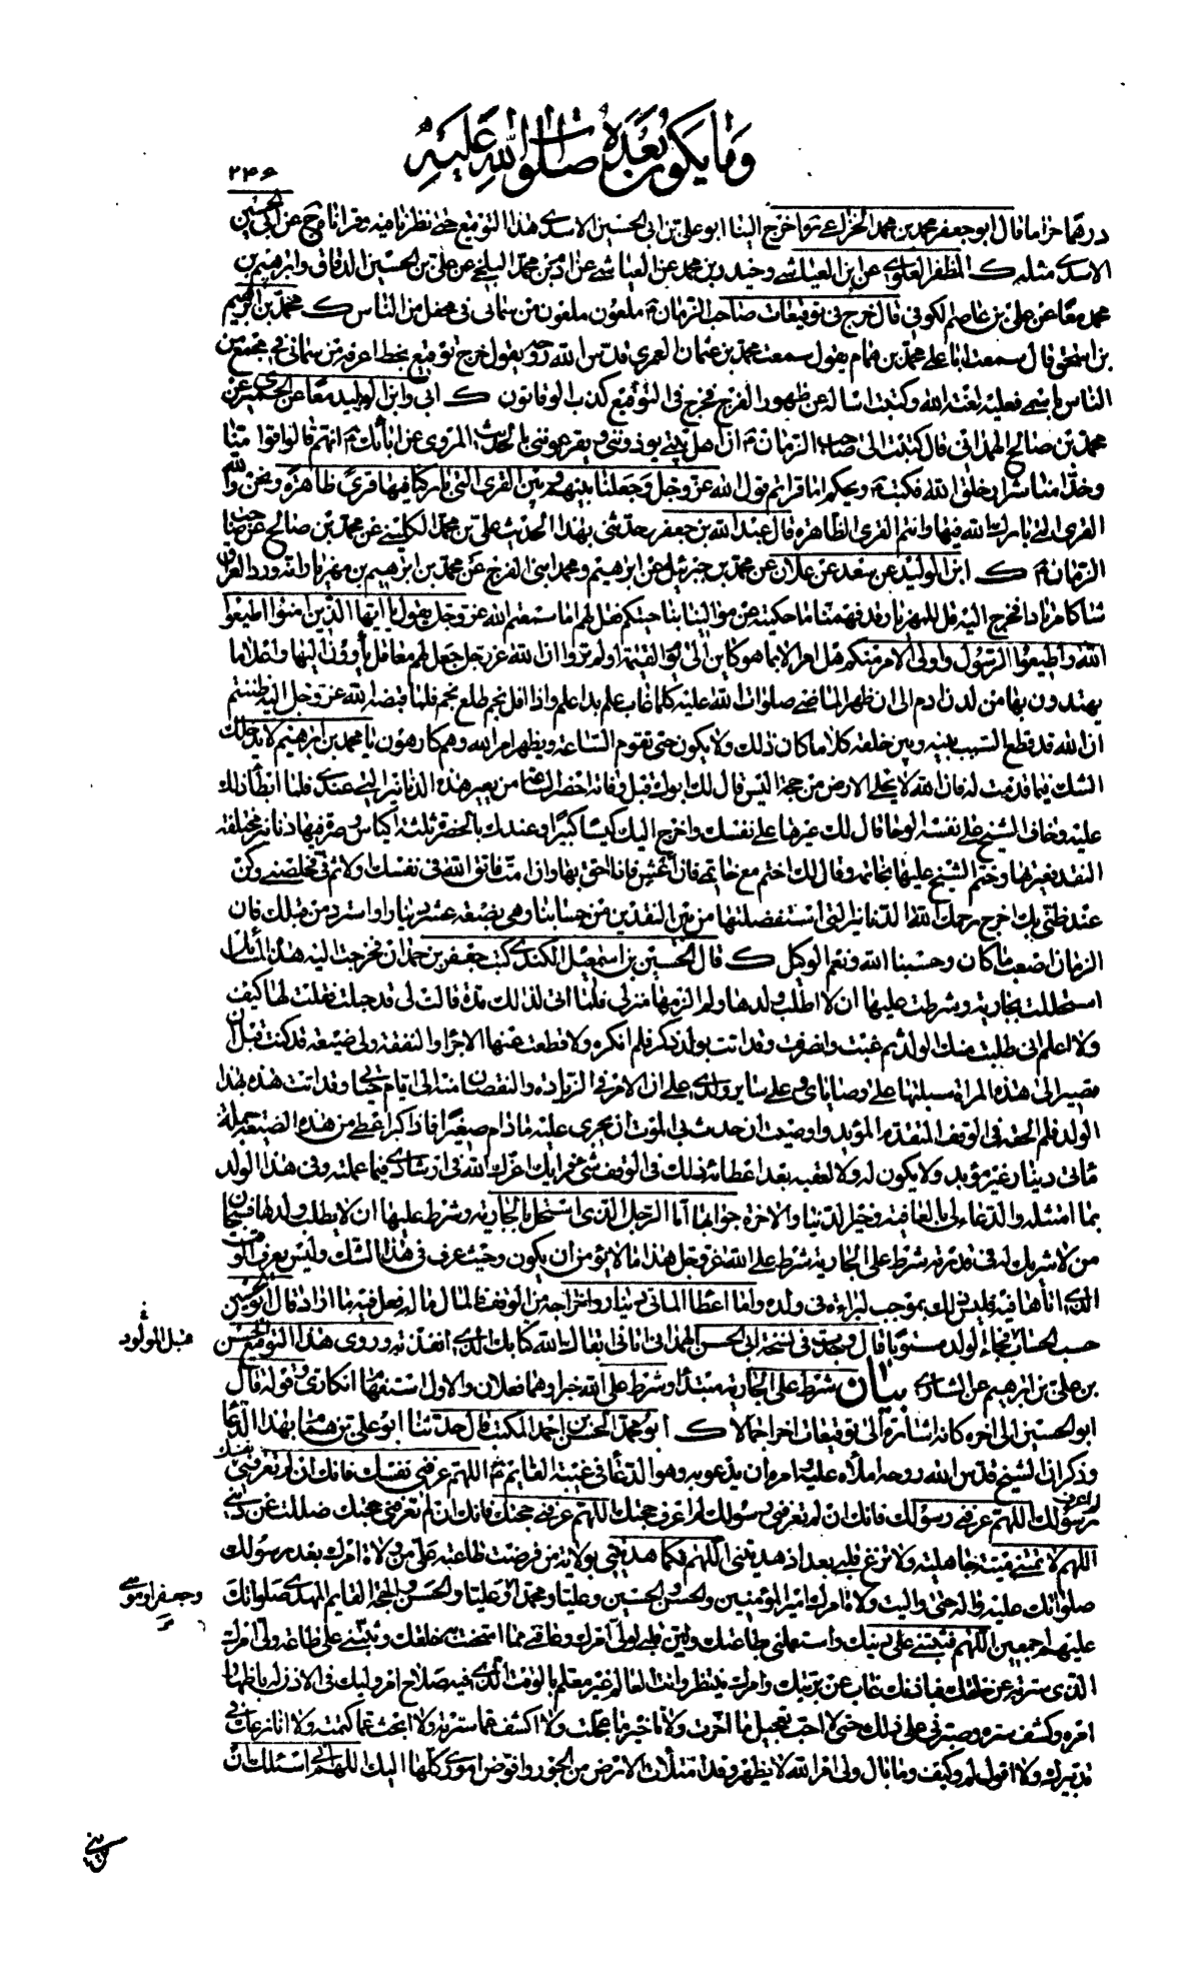 وما يكون بعده صلوات الله عليه
٢٤٦
درهما حراما قال ابو جعفر محمد بن محمد الخزاعي ره اخرج الينا ابو علي بن ابي الحسين الاسدي هذا التوقيع حتى نظرنا فيه وقرأناه ج عن ابي الحسين
الاسدي مثله ك المظفر العلوي عن ابن العياشي وحيدر بن محمد عن العياشي عن ادم بن محمد البلخي عن علي بن الحسين الدقاق وابرهيم بن
محمد معا عن علي بن عاصم الكوفي قال خرج في توقيعات صاحب الزمان ع ملعون ملعون من سماني في محفل من الناس ك محمد بن ابرهيم
بن اسحق قال سمعت ابا علي محمد بن همام يقول سمعت محمد بن عثمان العمري قدس الله روحه يقول خرج توقيع بخط اعرفه من سماني في مجمع من
الناس باسمي فعليه لعنة الله وكتبت اساله عن ظهور الفرج فخرج في التوقيع كذب الوقاتون ك ابي وابن الوليد معا عن الحميري عن
محمد بن صالح الهمداني قال كتبت الى صاحب الزمان ع ان اهل بيتي يوذونني ويقرعونني بالحديث المروي عن ابائك ع انهم قالوا قوامنا
وخدامنا شرار خلق الله فكتب ع ويحكم اما قراتم قول الله عز وجل وجعلنا بينهم وبين القرى التي باركنا فيها قرى ظاهرة ونحن والله
القرى التي بارك الله فيها وانتم القرى الظاهرة قال عبد الله بن جعفر حدثني بهذا الحديث علي بن محمد الكليني عن محمد بن صالح عن صاحب
الزمان ع ك ابن الوليد عن سعد عن علان عن محمد بن جبرئيل عن ابرهيم ومحمد ابني الفرج عن محمد بن ابرهيم بن مهزيار انه ورد العراق
شاكا مرتادا فخرج اليه قل للمهزيار قد فهمنا ما حكيته عن موالينا بناحيتكم فقل لهم اما سمعتم الله عز وجل يقول يا ايها الذين امنوا اطيعوا
الله واطيعوا الرسول واولي الامر منكم هل امر الا بما هو كاين الى يوم القيمة اولم تروا ان الله عز وجل جعل لهم معاقل ياوون اليها واعلاما
يهتدون بها من لدن ادم الى ان ظهر الماضي صلوات الله عليه كلما غاب علم بدا علم واذا افل نجم طلع نجم فلما قبضه الله عز وجل اليه ظننتم
ان الله قد قطع السبب بينه وبين خلقه كلا ما كان ذلك ولا يكون حتى تقوم الساعة ويظهر امر الله وهم كارهون يا محمد بن ابرهيم لا يدخلك
الشك فيما قدمت له فان الله لا يخلي الارض من حجة اليس قال لك ابوك قبل وفاته احضر الساعة من يعير هذه الدنانير التي عندي فلما ابطأ ذلك
عليه وخاف الشيخ على نفسه الوحا قال لك عيرها على نفسك واخرج اليك كيسا كبيرا وعندك بالحضرة ثلثة اكياس وصرة فيها دنانير مختلفة
النقد فعيرتها وختم الشيخ عليها بخاتمه وقال لك اختم مع خاتمي فان اعش فانا احق بها وان امت فاتق الله في نفسك اولا ثم في فخلصني وكن
عند ظني بك اخرج رحمك الله الدنانير التي استفضلتها من بين النقدين من حسابنا وهي بضعة عشر دينارا واسترد من قبلك فان
الزمان اصعب ما كان وحسبنا الله ونعم الوكيل ك قال الحسين بن اسمعيل الكندي كتب جعفر بن حمدان فخرجت اليه هذه المسائل
استحللت بجارية وشرطت عليها ان لا اطلب ولدها ولم الزمها منزلي فلما اتى لذلك مدة قالت لي قد حبلت فقلت لها كيف
ولا اعلم اني طلبت منك الولد ثم غبت وانصرفت وقد اتت بولد ذكر فلم انكره ولا قطعت عنها الاجراء والنفقة ولي ضيعة قد كنت قبل ان
تصير الى هذه المراة سبلتها على وصاياي وعلى ساير ولدي على ان الامر في الزيادة والنقصان منه الى ايام حياتي وقد اتت هذه بهذا
الولد فلم الحقه في الوقف المتقدم المؤبد واوصيت ان حدث بي الموت ان يجري عليه ما دام صغيرا فاذا كبر اعطي من هذه الضيعة جملة
مأتي دينار غير مؤبد ولا يكون له ولا لعقبه بعد اعطائه ذلك في الوقف شي فرايك اعزك الله في ارشادي فيما عملته وفي هذا الولد
بما امتثله والدعاء لي بالعافية وخير الدنيا والاخرة جوابها اما الرجل الذي استحل بالجارية وشرط عليها ان لا يطلب ولدها فسبحان
من لا شريك له في قدرته شرط على الجارية شرط على الله عز وجل هذا ما لا يؤمن ان يكون وحيث عرف في هذا الشك وليس يعرف الوقت
الذي اتاها فيه فليس ذلك بموجب لبراءة في ولده واما اعطاء المأتي دينار واخراجه من الوقف فالمال ماله فعل فيه ما اراد قال ابو الحسين
حسب الحساب فجاء الولد مستويا قال وجدت في نسخة ابي الحسن الهمداني اتاني ابقاك الله كتابك الذي انفذته وروى هذا التوقيع الحسن
قبل المولود
بن علي بن ابرهيم عن السياري بيان شرط على الجارية مبتدا وشرط على الله خبر او هما فعلان والاول استفهام انكاري وقوله قال
ابو الحسين الى اخره كانه اشارة الى توقيعات اخر اجمالا ك ابو محمد الحسين بن احمد المكتب قال حدثنا ابو علي بن همام بهذا الدعاء
وذكر ان الشيخ قدس الله روحه املاه عليه وامره ان يدعو به وهو الدعا في غيبة القايم ع اللهم عرفني نفسك فانك ان لم تعرفني نفسك
لم اعرف
رسولك اللهم عرفني رسولك فانك ان لم تعرفني رسولك لم اعرف حجتك اللهم عرفني حجتك فانك ان لم تعرفني حجتك ضللت عن ديني
اللهم لا تمتني ميتة جاهلية ولا تزغ قلبي بعد اذ هديتني اللهم فكما هديتني بولاية من فرضت طاعته علي من ولاة امرك بعد رسولك
صلواتك عليه واله حتى واليت ولاة امرك امير المؤمنين والحسن والحسين وعليا ومحمدا وعليا والحسن والحجة القايم المهدي صلواتك
وجعفرا وموسى
عليهم اجمعين اللهم فثبتني على دينك واستعملني بطاعتك ولين قلبي لولي امرك وعافني مما امتحنت به خلقك وثبتني على طاعة ولي امرك
الذي سترته عن خلقك فباذنك غاب عن بريتك وامرك ينتظر وانت العالم غير معلم بالوقت الذي فيه صلاح امر وليك في الاذن له باظهار
امره وكشف ستره وصبرني على ذلك حتى لا احب تعجيل ما اخرت ولا تاخير ما عجلت ولا اكشف عما سترته ولا ابحث عما كتمته ولا انازعك في
تدبيرك ولا اقول لم وكيف وما بال ولي امر الله لا يظهر وقد امتلات الارض من الجور وافوض اموري كلها اليك اللهم اني اسئلك ان
تريني